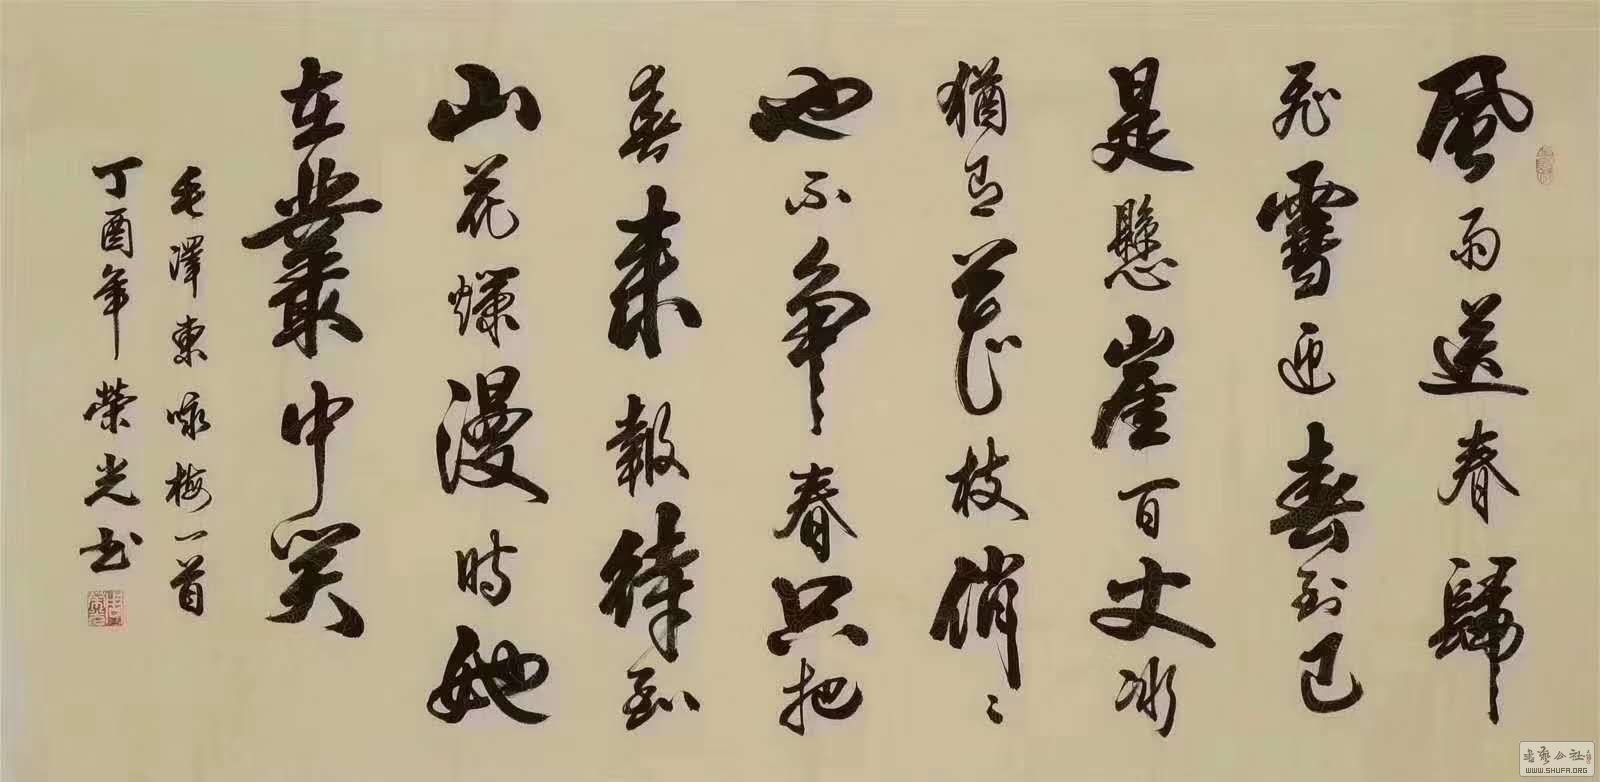 風雨送春歸
飛雪迎春到已
是懸崖百丈冰
猶有花枝俏〻
也不争春只把
春来報待到
山花爛漫時她
在叢中笑
毛澤東咏梅一首
丁酉年榮光书
书藝公社
WWW.SHUFA.ORG